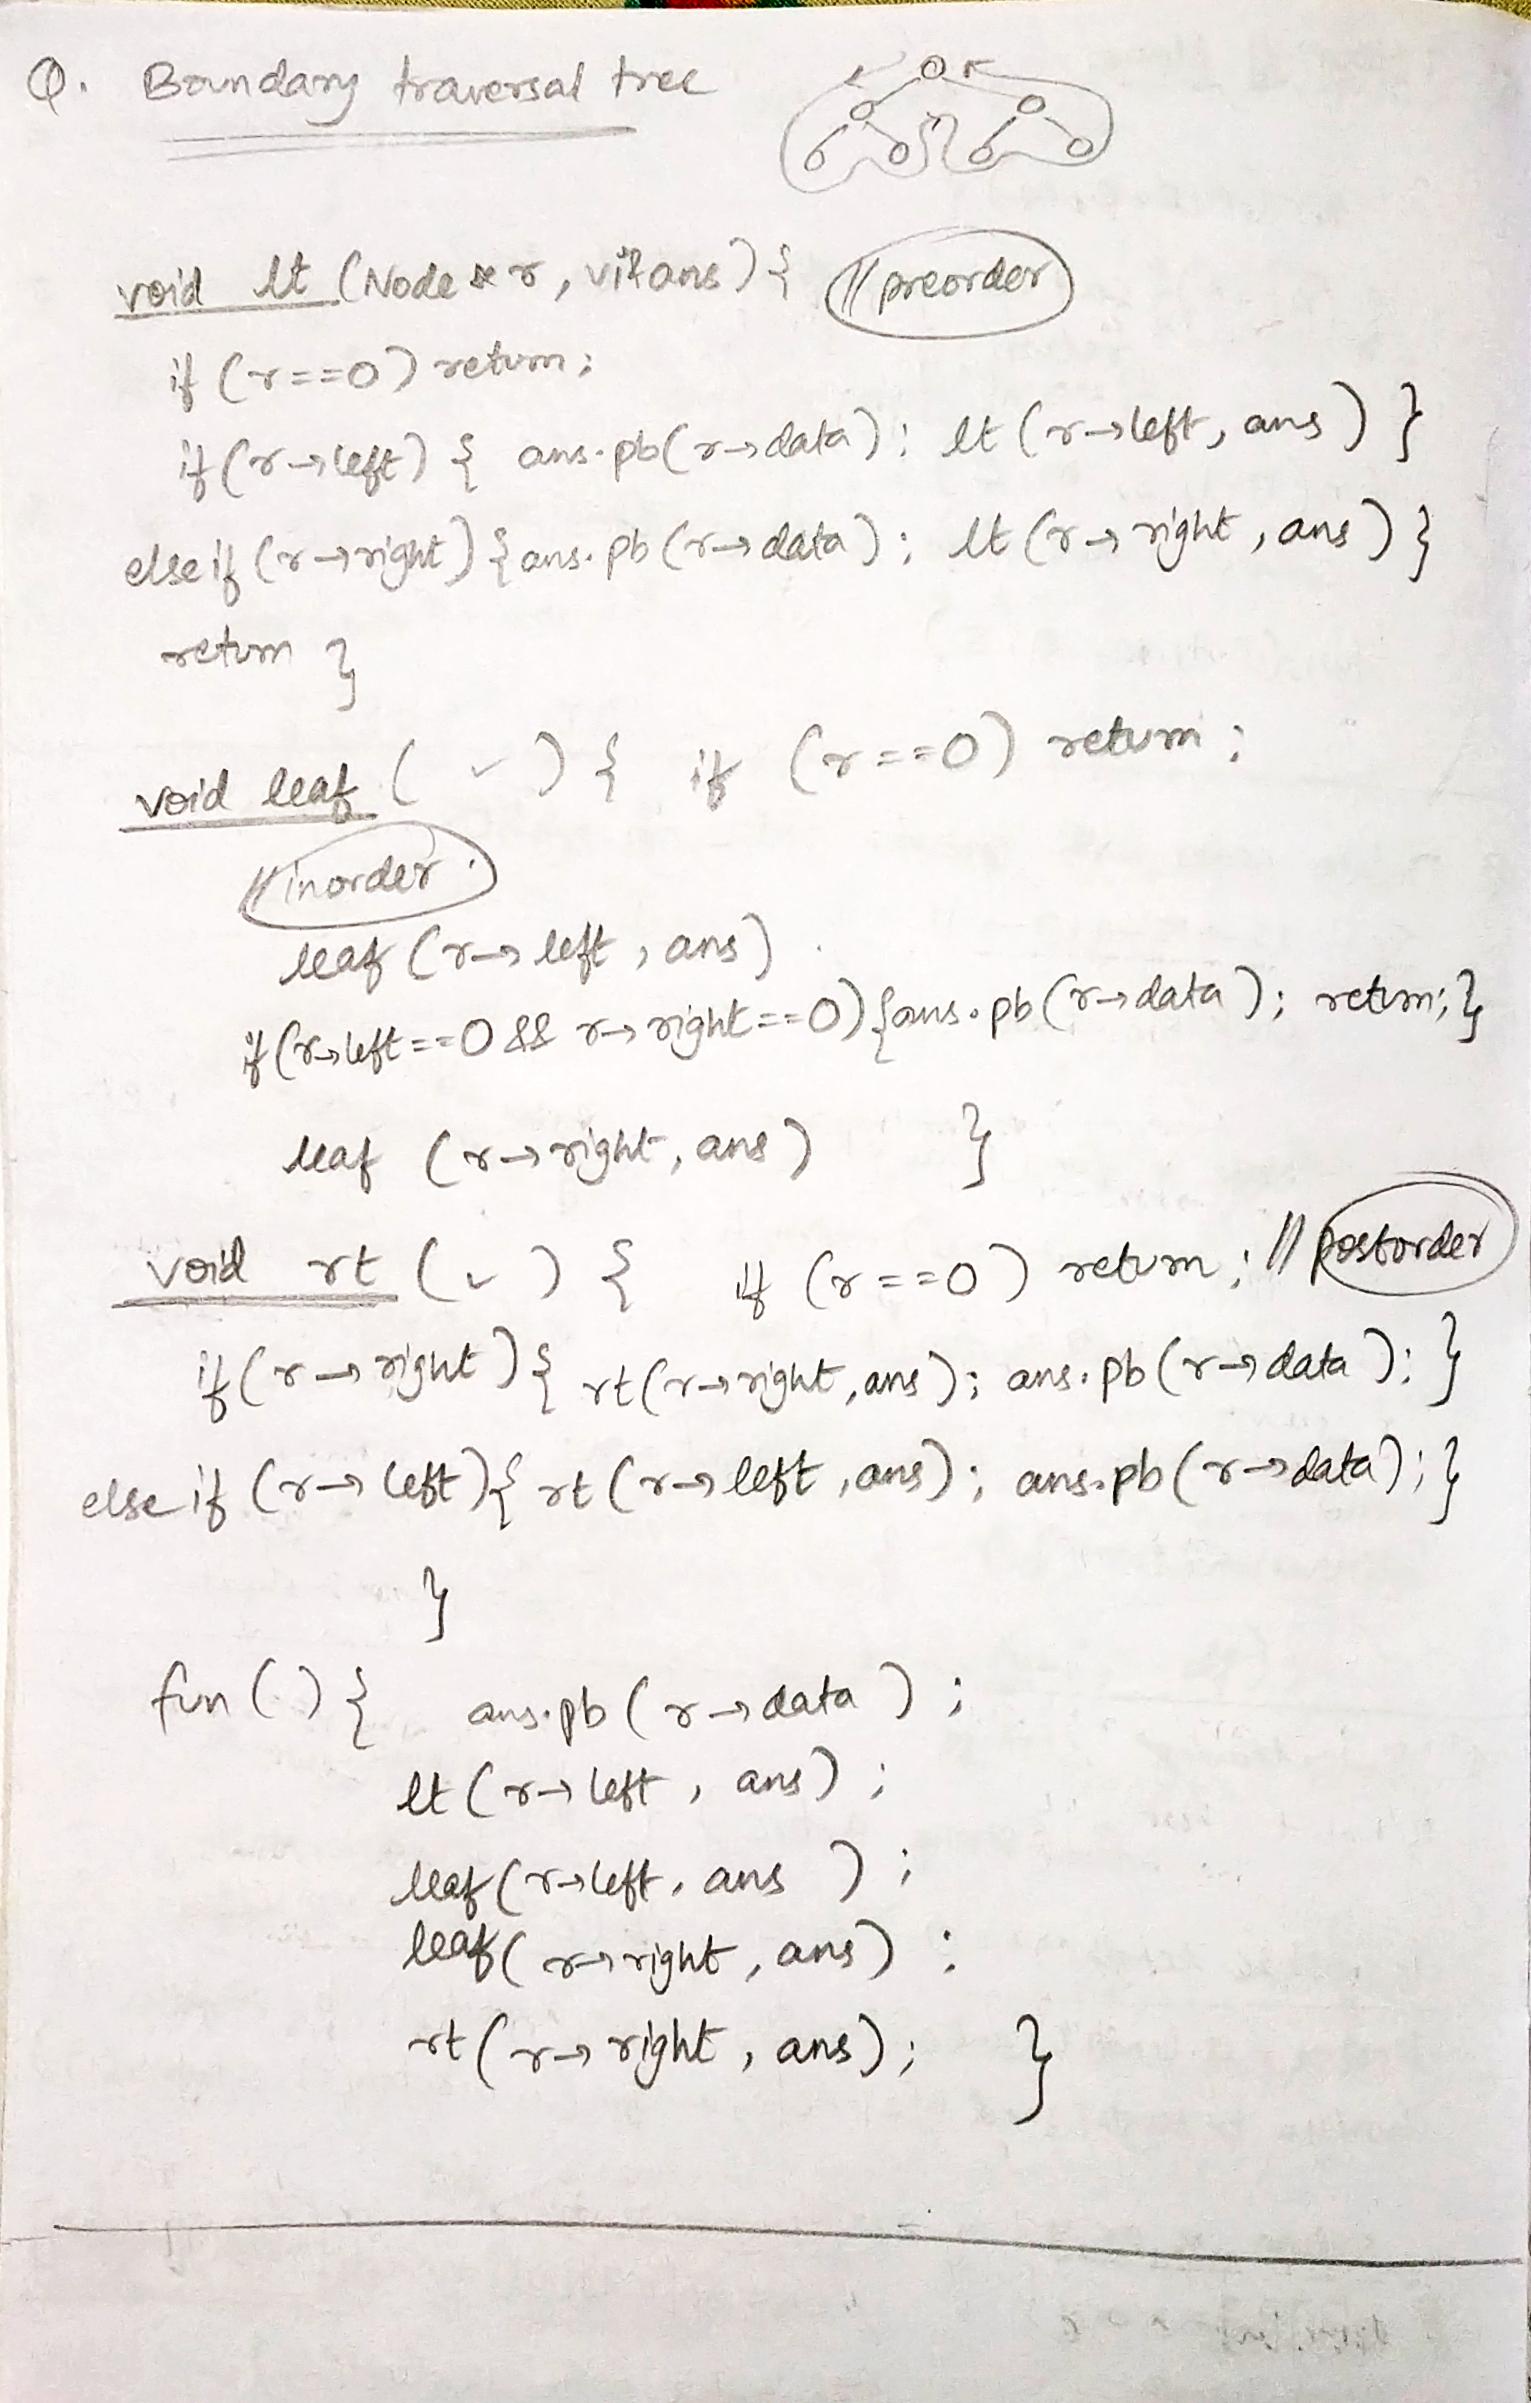 Q. Boundary traversal tree
void lt (Node * r, vi & ans) { // preorder
if (r==0) return;
if (r→left) { ans.pb(r→data); lt (r→left, ans) }
else if (r→right) { ans.pb (r→data); lt (r→right, ans) }
return }
void leaf ( ✓ ) { if (r==0) return;
// inorder.
leaf (r→left, ans)
if (r→left==0 && r→right==0) {ans.pb(r→data); return;}
leaf (r→right, ans) }
void rt ( ✓ ) { if (r==0) return; // postorder
if (r→right) { rt(r→right, ans); ans.pb(r→data); }
else if (r→left) { rt (r→left, ans); ans.pb(r→data); }
}
fun () { ans.pb (r→data);
lt (r→left, ans);
leaf (r→left, ans);
leaf (r→right, ans);
rt (r→right, ans); }